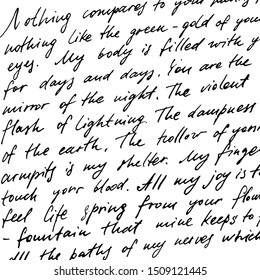 Nothing compares to your
nothing like the green-gold of your
eyes. My body is filled with y
for days and days. You are the
mirror of the night. The violent
flash of lightning. The dampness
of the earth. The hollow of your
armpits is my shelter. My finge
touch your blood. All my joy is to
feel life spring from your flow
- fountain that mine keeps to
all the paths of my nerves which
shutterstock.com · 1509121445